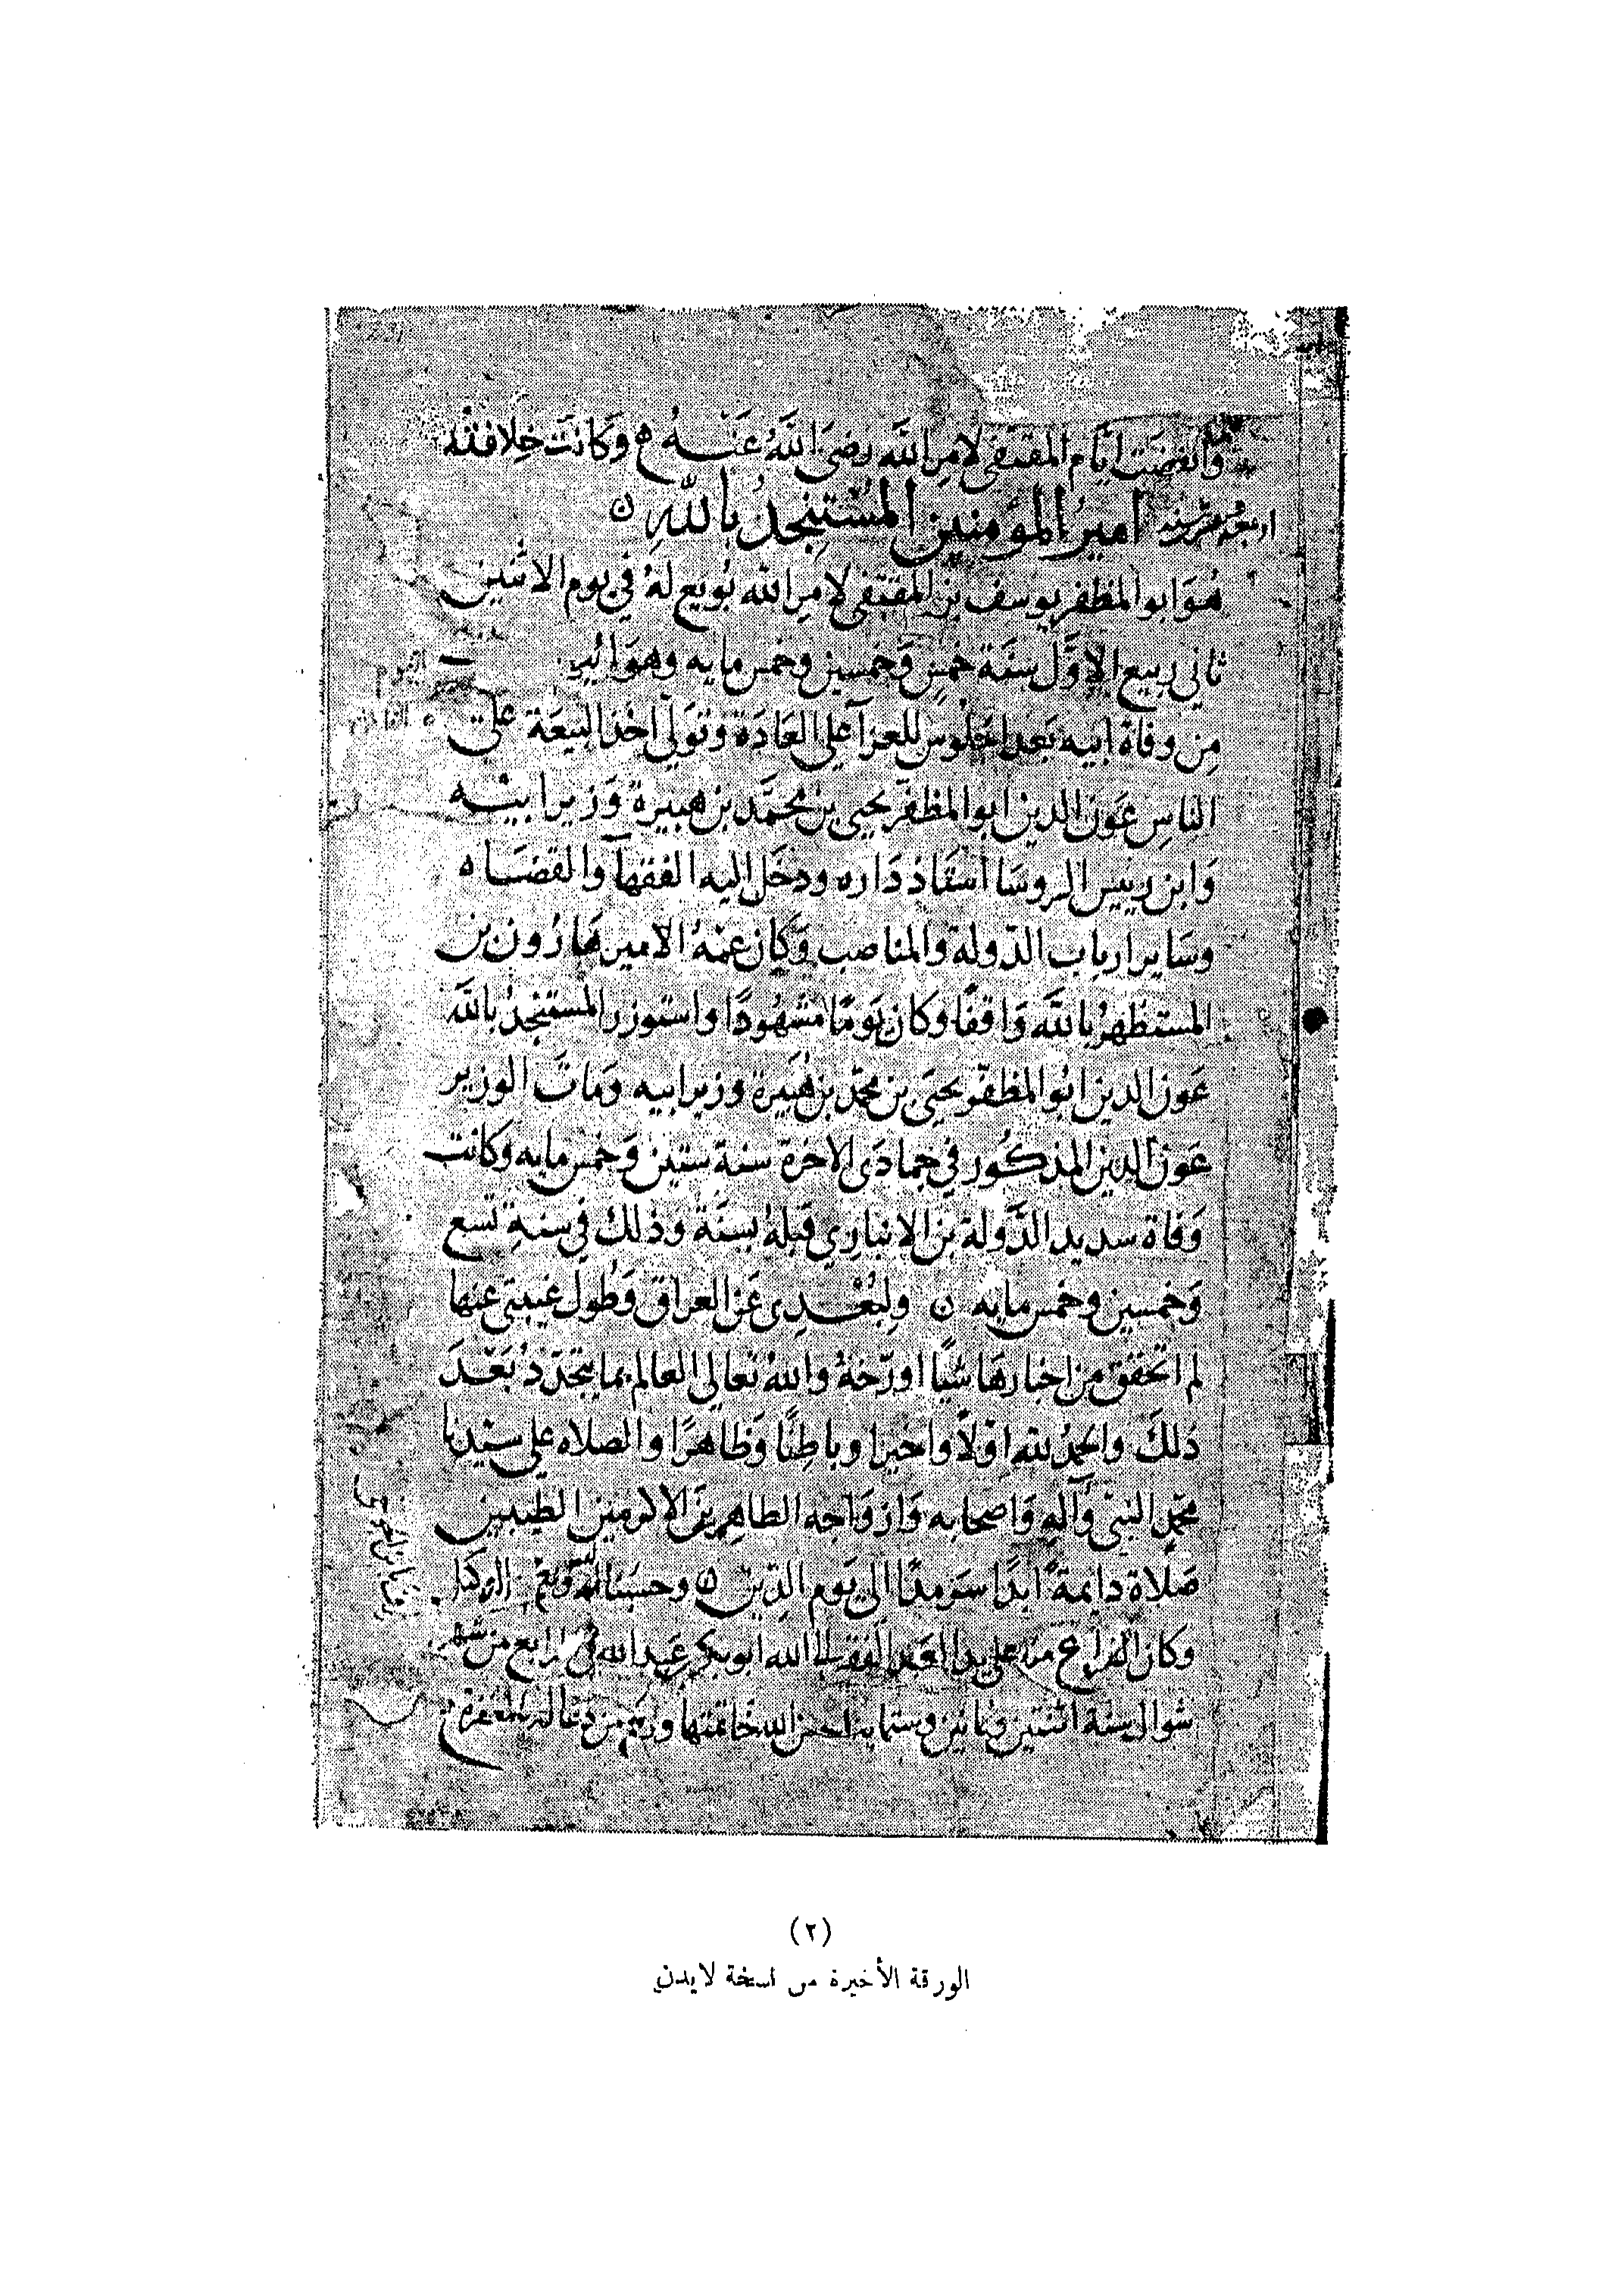 وانقضت ايّام المقتفى لامر الله رضى الله عَنْهُ ه وكانت خلافته
امير المؤمنين المُسْتنجدُ باللهِ ن
هُوَ ابو المظفر يوسف بن المقتفى لامر الله بُويع لهُ في يوم الاثنين
ثاني ربيع الاوّل سنة خمسٍ وخمسين وخمس مايه وهو
مِن وفاة ابيه بَعد الجلوس للعزآ على العَادَة وتولى اخذ البيعَة على
الناس عَون الدين ابو المظفر يحيى بن محمَّد بن هبيرة وَزير ابيه
وَابن رييس الروسَا استاذ دَاره ودخَل اليه الفقهآ والقضَاه
وسَاير ارباب الدّولة والمناصب وَكان عمّهُ الامير هَارُون بن
المستظهر بالله وَاقفًا وكان يَومًا مشهُودًا واستوزر المستنجدُ بالله
عَون الدين ابُو المظفّر يحيَى بن محمّد بن هُبَيرة وزير ابيه وَماتَ الوزير
عَون الدين المذكُور في جمادَى الاخرة سنة ستين وَخمس مايه وكانت
وَفاة سديد الدَّولة بن الانباري قبلهُ بسنَة وَذلك في سنةِ تسع
وَخمسين وخمس مايه ن ولبُعْدِى عَن العراق وَطُول غيبتى عنها
لم اتحقق من اخبارهَا شيًا اورّخهُ واللهُ تعالى العالم بما يتجَدّدُ بَعْدَ
ذلكَ والحمدُ لله اوّلاً واخيرا وباطِنًا وَظاهرًا والصلاه على سيّدنا
محمّدٍ النبىّ وآلهِ وَاصحابه وَازوَاجه الطاهرين الاكرمين الطيبين
صَلاة دايمةً ابدًا سَرمدًا الى يَوم الدّين ن وحسبنا الله وَنعم الوكيل
وكان الفراغ منه على يد العَبد الفقير الى الله ابو بكر عَبد الله في رابع من شهر
شوال سنة اثنتين وثمانين وستمايه احسن الله خاتمتها ورحم من دعَا له بالمغفره
(٢)
الورقة الأخيرة من نسخة لايدن